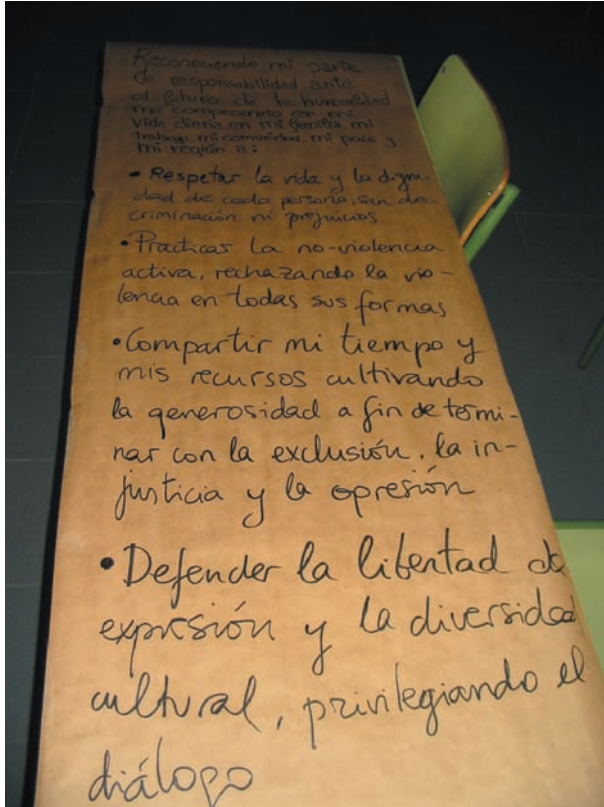 Reconociendo mi parte
de responsabilidad ante
el futuro de la humanidad
me comprometo en mi
vida diaria en mi familia, mi
trabajo, mi comunidad, mi país y
mi región a:
• Respetar la vida y la digni-
dad de cada persona, sin dis-
criminación ni prejuicios
• Practicar la no-violencia
activa, rechazando la vio-
lencia en todas sus formas
• Compartir mi tiempo y
mis recursos cultivando
la generosidad a fin de termi-
nar con la exclusión, la in-
justicia y la opresión
• Defender la libertad de
expresión y la diversidad
cultural, privilegiando el
diálogo